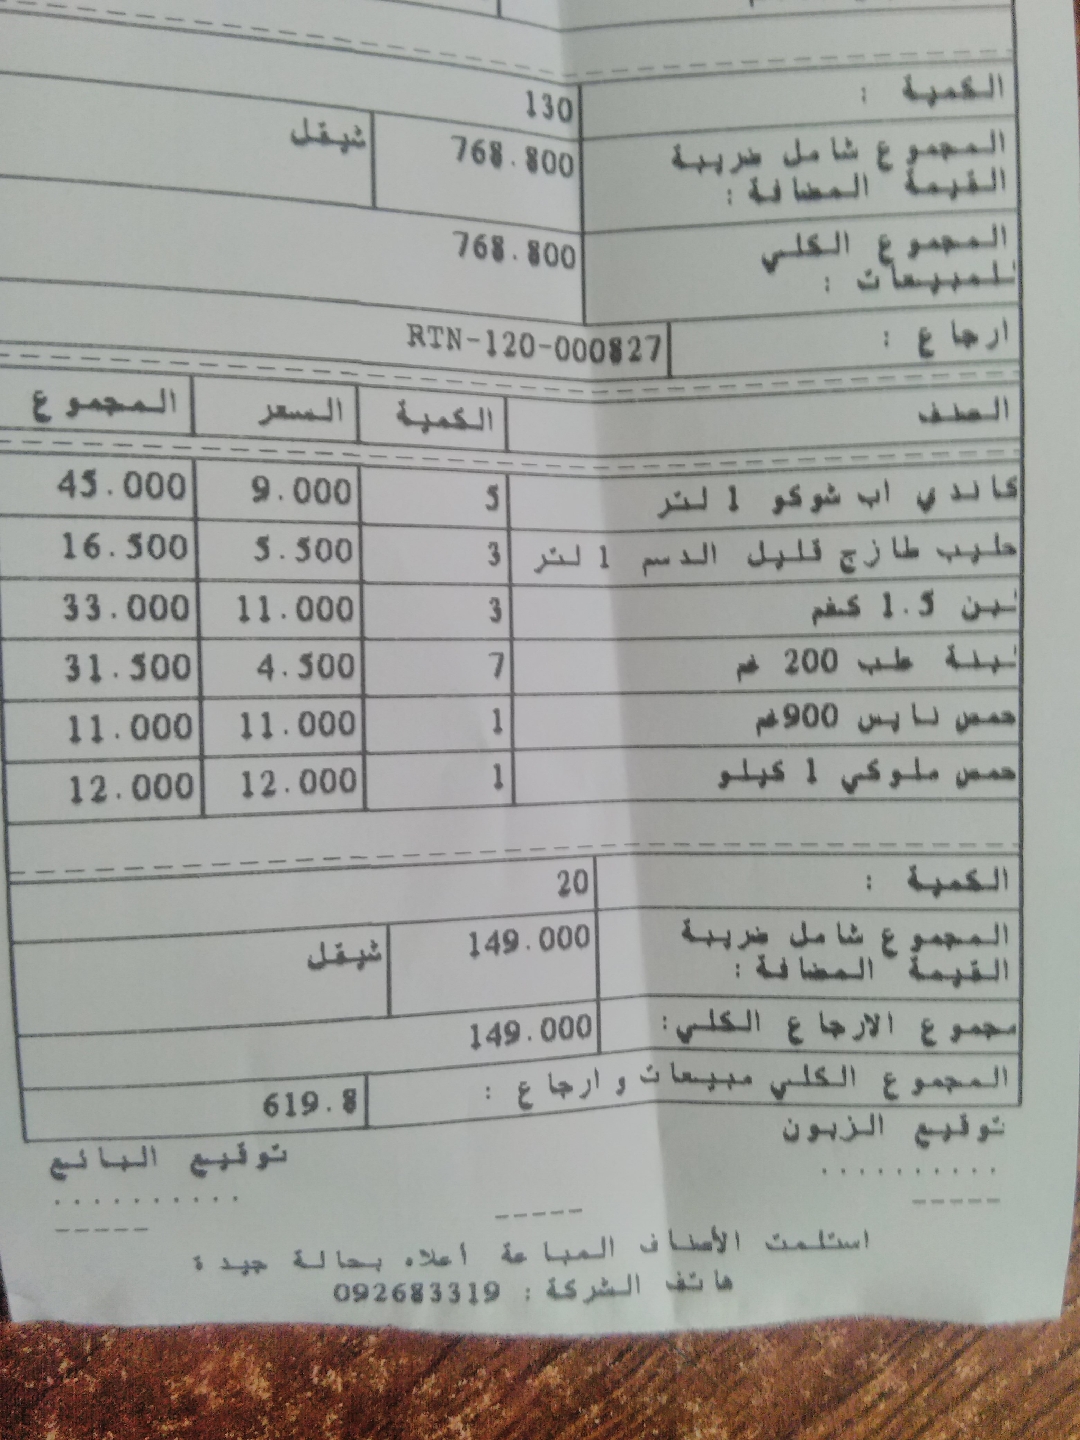 الكمية : 130
المجموع شامل ضريبة 768.800 شيقل
القيمة المضافة :
المجموع الكلي 768.800
للمبيعات :
ارجاع : RTN-120-000827
الصنف الكمية السعر المجموع
كاندي اب شوكو 1 لتر 5 9.000 45.000
حليب طازج قليل الدسم 1 لتر 3 5.500 16.500
لبن 1.5 كغم 3 11.000 33.000
لبنة طب 200 غم 7 4.500 31.500
حمص نايس 900غم 1 11.000 11.000
حمص ملوكي 1 كيلو 1 12.000 12.000
الكمية : 20
المجموع شامل ضريبة 149.000 شيقل
القيمة المضافة :
مجموع الارجاع الكلي: 149.000
المجموع الكلي مبيعات و ارجاع : 619.8
توقيع الزبون توقيع البائع
.......... ..........
----- ----- -----
استلمت الأصناف المباعة أعلاه بحالة جيدة
هاتف الشركة : 092683319